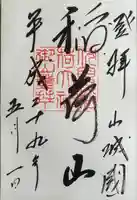 登拝 山城國
稲荷山
平成二十九年
五月一日